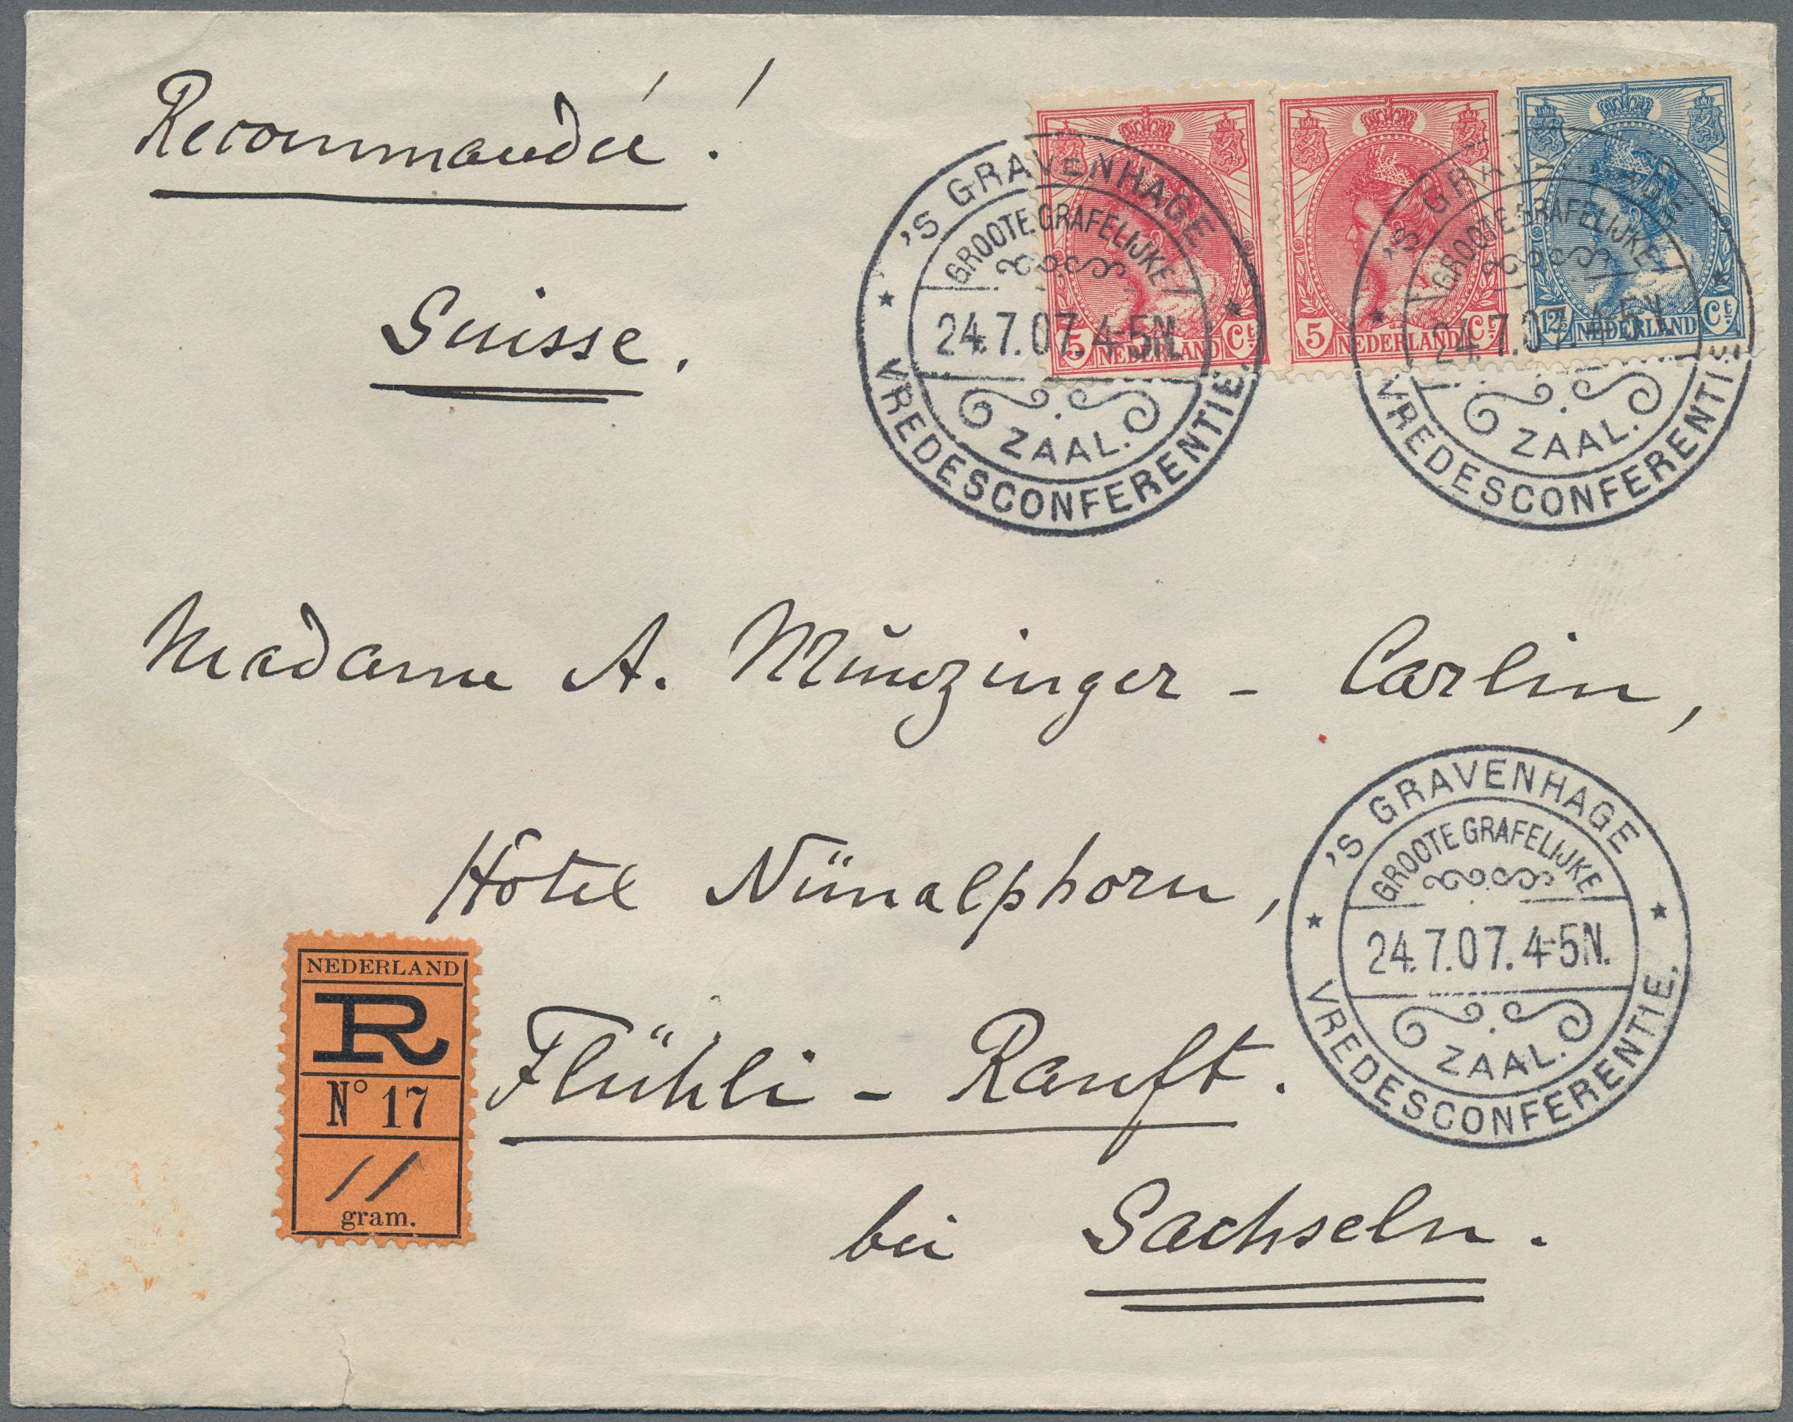 Recommandée !
Suisse.
5 NEDERLAND Ct
5 NEDERLAND Ct
12½ NEDERLAND Ct
'S GRAVENHAGE
GROOTE GRAFELIJKE
24.7.07. 4-5N.
ZAAL.
VREDESCONFERENTIE.
'S GRAVENHAGE
GROOTE GRAFELIJKE
24.7.07. 4-5N.
ZAAL.
VREDESCONFERENTIE.
Madame A. Münzinger - Carlin,
Hôtel Nünalphorn,
Flühli - Ranft.
bei Sachseln.
'S GRAVENHAGE
GROOTE GRAFELIJKE
24.7.07. 4-5N.
ZAAL.
VREDESCONFERENTIE.
NEDERLAND
R
No 17
11
gram.